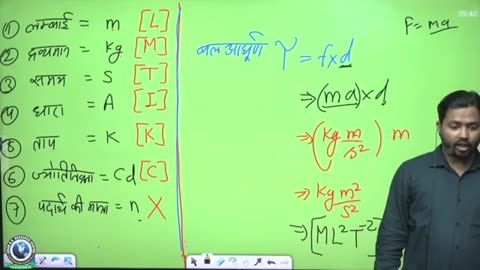 ① लम्बाई = m [L]
② द्रव्यमान = Kg [M]
③ समय = S [T]
④ धारा = A [I]
⑤ ताप = K [K]
⑥ = Cd [C]
⑦ पदार्थ की मात्रा = n X
बल आघूर्ण τ = f×d
⇒ (ma)×d
⇒ (kg m/s²) m
⇒ kg m²/s²
⇒ [ML²T⁻²]
F = ma
09:40